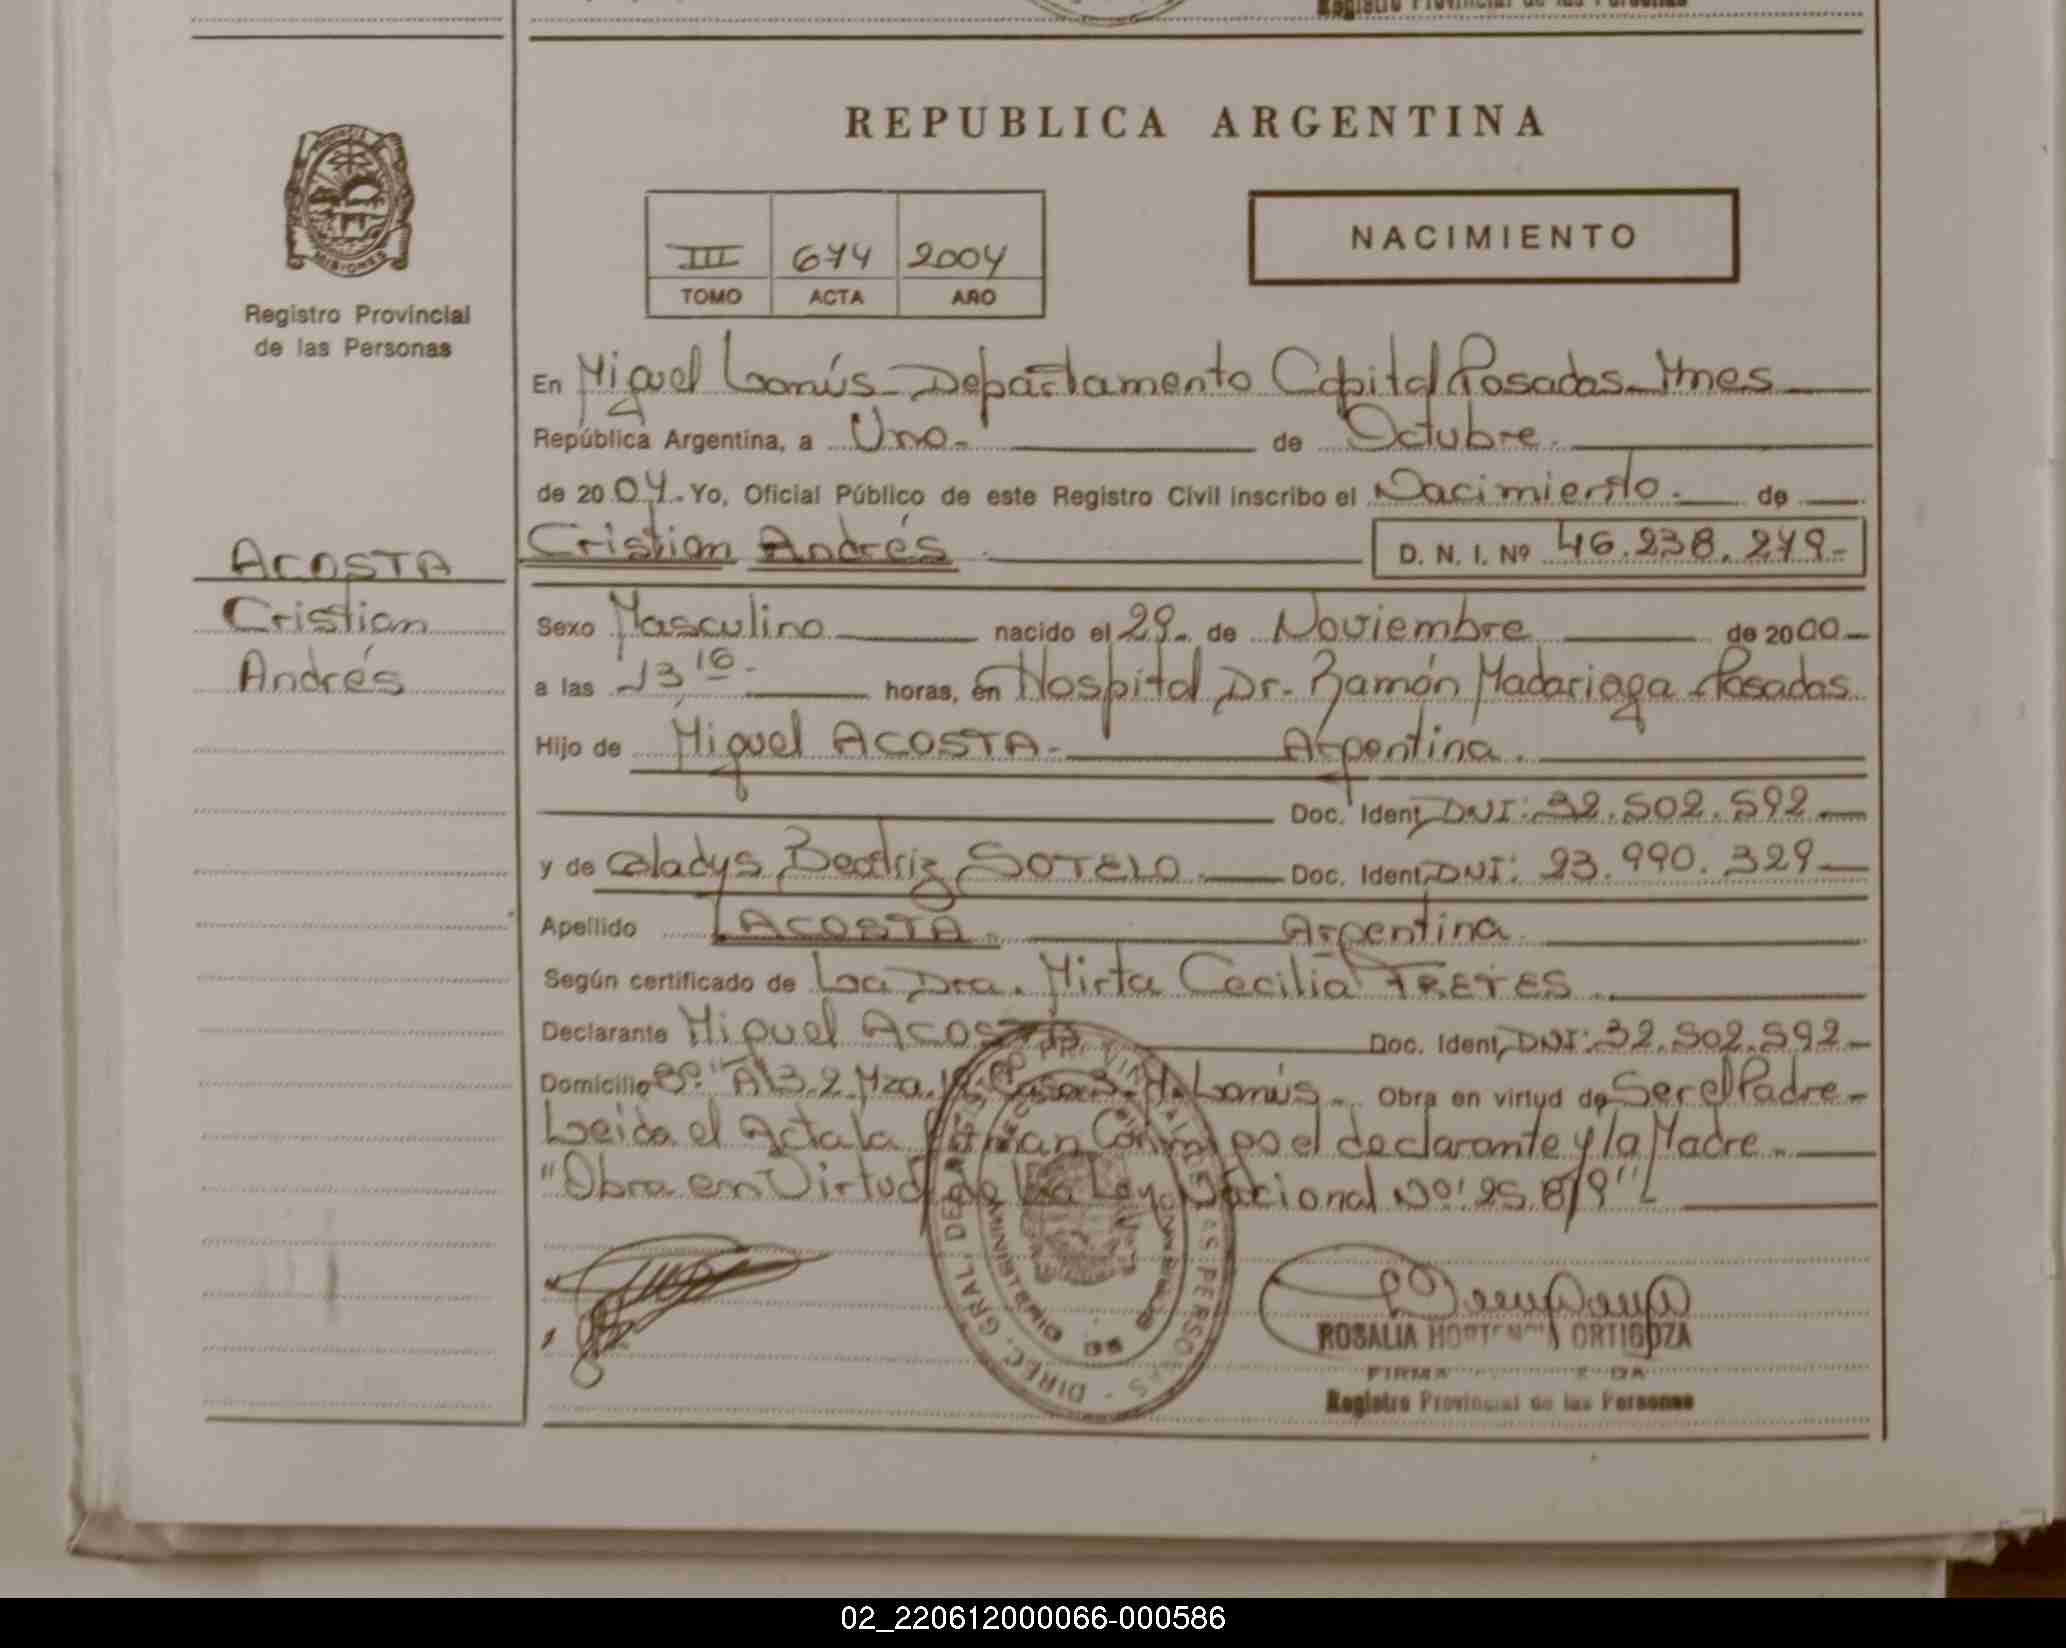 REPUBLICA ARGENTINA
PROVINCIA
MISIONES
Registro Provincial
de las Personas
III 674 2004
TOMO ACTA AÑO
NACIMIENTO
En Miguel Lanús - Departamento Capital Posadas - Mnes
República Argentina, a Uno - de Octubre.
de 2004. Yo, Oficial Público de este Registro Civil inscribo el Nacimiento. de
Cristian Andrés D. N. I. Nº 46.238.279.-
ACOSTA
Cristian
Andrés
Sexo Masculino nacido el 29. de Noviembre de 2000
a las 13 16 horas, en Hospital Dr. Ramón Madariaga Posadas
Hijo de Miguel ACOSTA - Argentina.
Doc. Ident. DNI: 32.502.592
y de Gladys Beatriz SOTELO Doc. Ident. DNI: 23.990.329
Apellido ACOSTA Argentina
Según certificado de La Dra. Mirta Cecilia
Declarante Miguel ACOSTA Doc. Ident. DNI: 32.502.592
Domicilio Bº "A" 3.2 Mza. Lanús. Obra en virtud de Ser el Padre -
Leida el Acta la firman Conmigo el declarante y la Madre.
"Obra en Virtud de la Ley Nacional Nº: 25.819"
DIREC. GRAL. DEL REGISTRO PROVINCIAL DE LAS PERSONAS
ROSALIA ORTIGOZA
FIRMA
Registro Provincial de las Personas
02_220612000066-000586